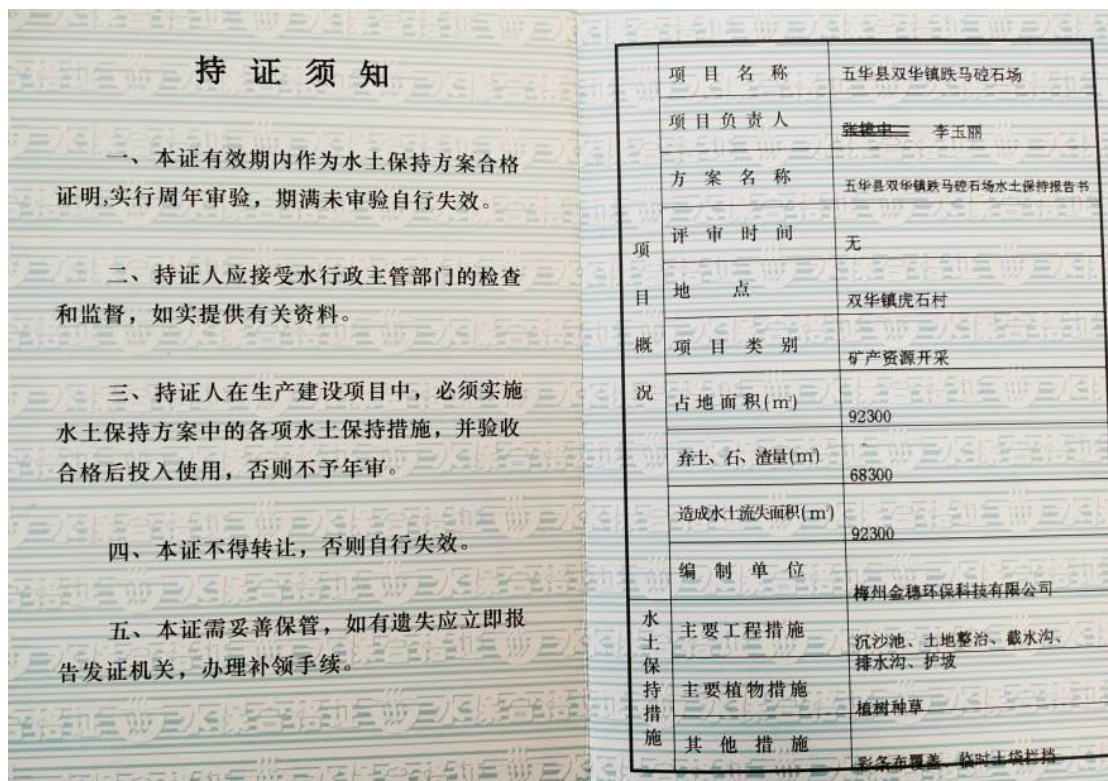 持证须知
一、本证有效期内作为水土保持方案合格
证明,实行周年审验，期满未审验自行失效。
二、持证人应接受水行政主管部门的检查
和监督，如实提供有关资料。
三、持证人在生产建设项目中，必须实施
水土保持方案中的各项水土保持措施，并验收
合格后投入使用，否则不予年审。
四、本证不得转让，否则自行失效。
五、本证需妥善保管，如有遗失应立即报
告发证机关，办理补领手续。
项目概况
项目名称 五华县双华镇跌马硿石场
项目负责人 张镜中 李玉丽
方案名称 五华县双华镇跌马硿石场水土保持报告书
评审时间 无
地点 双华镇虎石村
项目类别 矿产资源开采
占地面积(m²) 92300
弃土、石、渣量(m³) 68300
造成水土流失面积(m²) 92300
编制单位 梅州金穗环保科技有限公司
水土保持措施
主要工程措施 沉沙池、土地整治、截水沟、
排水沟、护坡
主要植物措施 植树种草
其他措施 彩条布覆盖、临时土袋拦挡